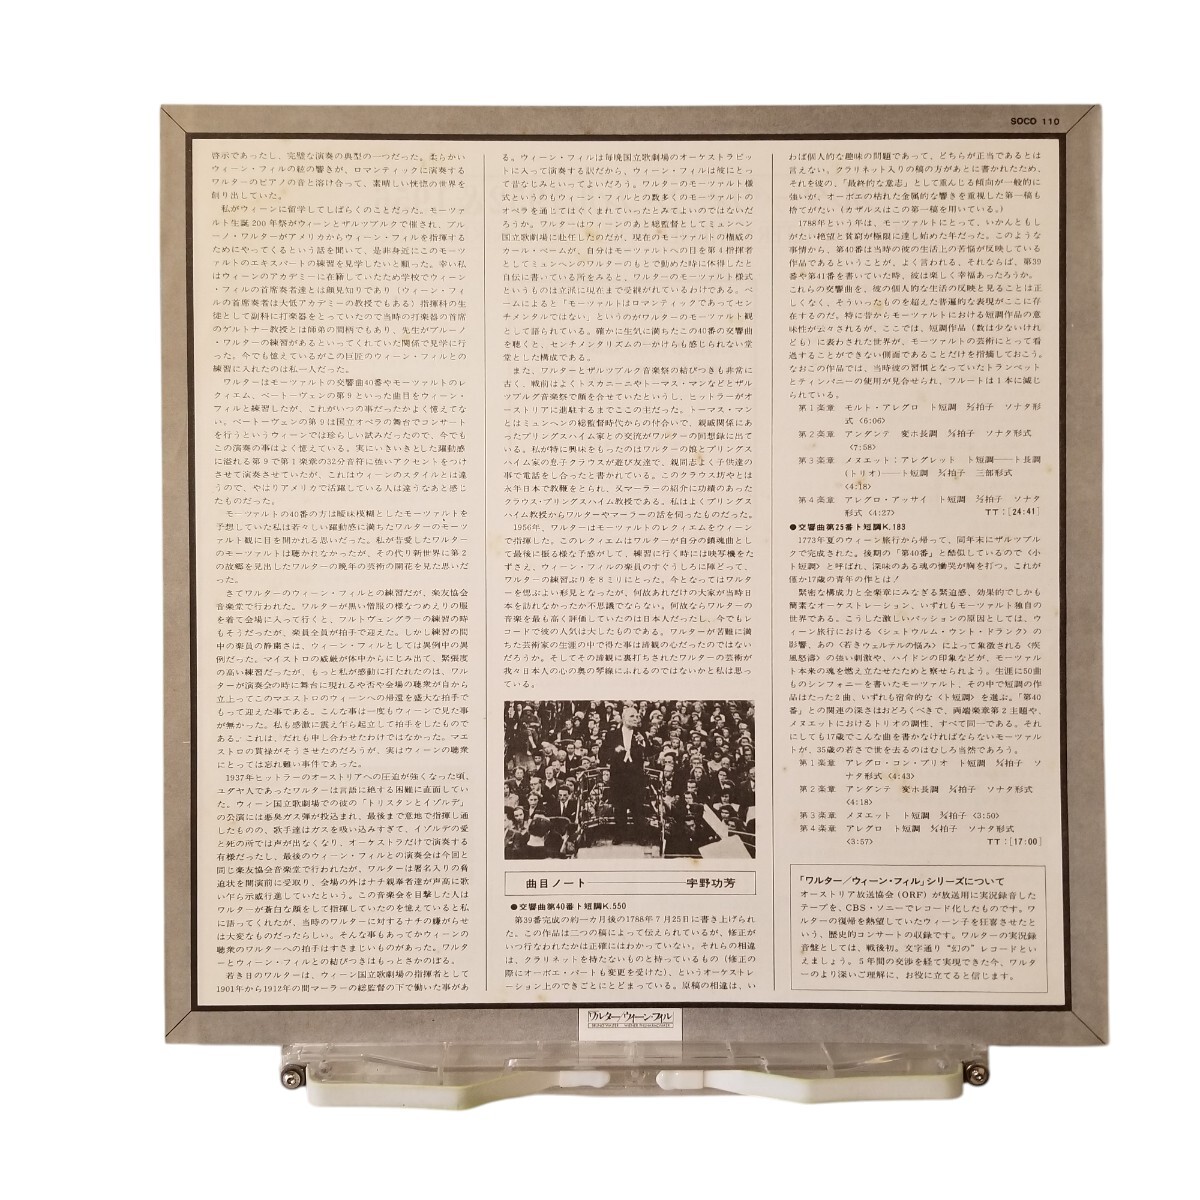 SOCO 110
啓示であったし、完璧な演奏の典型の一つだった。柔らかい
ウィーン・フィルの絃の響きが、ロマンティックに演奏する
ワルターのピアノの音と溶け合って、素晴しい恍惚の世界を
創り出していた。
私がウィーンに留学してしばらくのことだった。モーツァ
ルト生誕200年祭がウィーンとザルツブルクで催され、ブル
ーノ・ワルターがアメリカからウィーン・フィルを指揮する
ためにやってくるという話を聞いて、是非身近にこのモーツ
ァルトのエキスパートの練習を見学したいと願った。幸い私
はウィーンのアカデミーに在籍していたため学校でウィーン
・フィルの首席奏者達とは顔見知りであり（ウィーン・フィ
ルの首席奏者は大低アカデミーの教授でもある）指揮科の生
徒として副科に打楽器をとっていたので当時の打楽器の首席
のゲルトナー教授とは師弟の間柄でもあり、先生がブルーノ
・ワルターの練習があるといってくれていた関係で見学に行
った。今でも憶えているがこの巨匠のウィーン・フィルとの
練習に入れたのは私一人だった。
ワルターはモーツァルトの交響曲40番やモーツァルトのレ
クィエム、ベートーヴェンの第9といった曲目をウィーン・
フィルと練習したが、これがいつの事だったかよく憶えてな
い。ベートーヴェンの第9は国立オペラの舞台でコンサート
を行うというウィーンでは珍らしい試みだったので、今でも
この演奏の事はよく憶えている。実にいきいきとした躍動感
に溢れる第9で第1楽章の32分音符に強いアクセントをつけ
させて演奏させていたが、これはウィーンのスタイルとは違
うので、やはりアメリカで活躍している人は違うなあと感じ
たものだった。
モーツァルトの40番の方は曖昧模糊としたモーツァルトを
予想していた私は若々しい躍動感に満ちたワルターのモーツ
ァルト観に目を開かれる思いだった。私が昔愛したワルター
のモーツァルトは聴かれなかったが、その代り新世界に第2
の故郷を見出したワルターの晩年の芸術の開花を見た思いだ
った。
さてワルターのウィーン・フィルとの練習だが、楽友協会
音楽堂で行われた。ワルターが黒い僧服の様なつめえりの服
を着て会場に入って行くと、フルトヴェングラーの練習の時
もそうだったが、楽員全員が拍手で迎えた。しかし練習の間
中の楽員の静粛さは、ウィーン・フィルとしては異例中の異
例だった。マイストロの威厳が体中からにじみ出て、緊張度
の高い練習だったが、もっと私が感動に打たれたのは、ワル
ターが演奏会の時に舞台に現れるや否や会場の聴衆が自から
立上ってこのマエストロのウィーンへの帰還を盛大な拍手で
もって迎えた事である。こんな事は一度もウィーンで見た事
が無かった。私も感激に震え乍ら起立して拍手をしたもので
ある。これは、だれも申し合わせたわけではなかった。マエ
ストロの貫禄がそうさせたのだろうが、実はウィーンの聴衆
にとっては忘れ難い事件であった。
1937年ヒットラーのオーストリアへの圧迫が強くなった頃、
ユダヤ人であったワルターは言語に絶する困難に直面してい
た。ウィーン国立歌劇場での彼の「トリスタンとイゾルデ」
の公演には悪臭ガス弾が投込まれ、最後まで意地で指揮し通
したものの、歌手達はガスを吸い込みすぎて、イゾルデの愛
と死の所では声が出なくなり、オーケストラだけで演奏する
有様だったし、最後のウィーン・フィルとの演奏会は今回と
同じ楽友協会音楽堂で行われたが、ワルターは署名入りの脅
迫状を開演前に受取り、会場の外はナチ親奉者達が声高に歌
い乍ら示威行進していたという。この音楽会を目撃した人は
ワルターが蒼白な顔をして指揮していたのを憶えていると私
に語ってくれたが、当時のワルターに対するナチの嫌がらせ
は大変なものだったらしい。そんな事もあってかウィーンの
聴衆のワルターへの拍手はすさまじいものがあった。ワルタ
ーとウィーン・フィルとの結びつきはもっとさかのぼる。
若き日のワルターは、ウィーン国立歌劇場の指揮者として
1901年から1912年の間マーラーの総監督の下で働いた事があ
る。ウィーン・フィルは毎晩国立歌劇場のオーケストラピッ
トに入って演奏する訳だから、ウィーン・フィルは彼にとっ
て昔なじみといってよいだろう。ワルターのモーツァルト様
式というのもウィーン・フィルとの数多くのモーツァルトの
オペラを通じてはぐくまれていったとみてよいのではないだ
ろうか。ワルターはウィーンのあと総監督としてミュンヘン
国立歌劇場に赴任したのだが、現在のモーツァルトの権威の
カール・ベームが、自分はモーツァルトへの目を第4指揮者
としてミュンヘンのワルターのもとで勤めた時に体得したと
自伝に書いている所をみると、ワルターのモーツァルト様式
というものは立派に現在まで受継がれているわけである。ベ
ームによると「モーツァルトはロマンティックであってセン
チメンタルではない」というのがワルターのモーツァルト観
として語られている。確かに生気に満ちたこの40番の交響曲
を聴くと、センチメンタリズムの一かけらも感じられない堂
堂とした構成である。
また、ワルターとザルツブルク音楽祭の結びつきも非常に
古く、戦前はよくトスカニーニやトーマス・マンなどとザル
ツブルグ音楽祭で顔を合せていたというし、ヒットラーがオ
ーストリアに進駐するまでここの主だった。トーマス・マン
とはミュンヘンの総監督時代からの付合いで、親戚関係にあ
ったプリングスハイム家との交流がワルターの回想録に出て
いる。私が特に興味をもったのはワルターの娘とプリングス
ハイム家の息子クラウスが遊び友達で、親同志よく子供達の
事で電話をし合ったと書かれている。このクラウス坊やとは
永年日本で教鞭をとられ、又マーラーの紹介に功績のあった
クラウス・プリングスハイム教授である。私はよくプリングス
ハイム教授からワルターやマーラーの話を伺ったものだった。
1956年、ワルターはモーツァルトのレクィエムをウィーン
で指揮した。このレクィエムはワルターが自分の鎮魂曲とし
て最後に振る様な予感がして、練習に行く時には映写機をた
ずさえ、ウィーン・フィルの楽員のすぐうしろに陣どって、
ワルターの練習ぶりを8ミリにとった。今となってはワルタ
ーを偲ぶよい形見となったが、何故あれだけの大家が当時日
本を訪れなかったか不思議でならない。何故ならワルターの
音楽を最も高く評価していたのは日本人だったし、今でもレ
コードで彼の人気は大したものである。ワルターが苦難に満
ちた芸術家の生涯の中で得た事は清観の心だったのではない
だろうか。そしてその清観に裏打ちされたワルターの芸術が
我々日本人の心の奥の琴線にふれるのではないかと私は思っ
ている。
曲目ノート 宇野功芳
●交響曲第40番ト短調K.550
第39番完成の約一カ月後の1788年7月25日に書き上げられ
た。この作品は三つの稿によって伝えられているが、修正が
いつ行なわれたかは正確にはわかっていない。それらの相違
は、クラリネットを持たないものと持っているもの（修正の
際にオーボエ・パートも変更を受けた）、というオーケストレ
ーション上のできごとにとどまっている。原稿の相違は、い
わば個人的な趣味の問題であって、どちらが正当であるとは
言えない。クラリネット入りの稿の方があとに書かれたため、
それを彼の、「最終的な意志」として重んじる傾向が一般的に
強いが、オーボエの枯れた金属的な響きを重視した第一稿も
捨てがたい（カザルスはこの第一稿を用いている。）
1788年という年は、モーツァルトにとって、いかんともし
がたい絶望と貧窮が極限に達し始めた年だった。このような
事情から、第40番は当時の彼の生活上の苦悩が反映している
作品であるということが、よく言われる。それならば、第39
番や第41番を書いていた時、彼は楽しく幸福あったろうか。
これらの交響曲を、彼の個人的な生活の反映と見ることは正
しくなく、そういったものを超えた普遍的な表現がここに存
在するのだ。特に昔からモーツァルトにおける短調作品の意
味性が云々されるが、ここでは、短調作品（数は少ないけれ
ども）に表わされた世界が、モーツァルトの芸術にとって看
過することができない側面であることだけを指摘しておこう。
なおこの作品では、当時彼の習慣となっていたトランペット
とティンパニーの使用が見合せられ、フルートは1本に減じ
られている。
第1楽章 モルト・アレグロ ト短調 2/2拍子 ソナタ形
式〈6:06〉
第2楽章 アンダンテ 変ホ長調 6/8拍子 ソナタ形式
〈7:58〉
第3楽章 メヌエット：アレグレット ト短調――ト長調
(トリオ)――ト短調 3/4拍子 三部形式
〈4:18〉
第4楽章 アレグロ・アッサイ ト短調 2/2拍子 ソナタ
形式〈4:27〉 TT：[24:41]
●交響曲第25番ト短調K.183
1773年夏のウィーン旅行から帰って、同年末にザルツブル
クで完成された。後期の「第40番」と酷似しているので〈小
ト短調〉と呼ばれ、深味のある魂の慟哭が胸を打つ。これが
僅か17歳の青年の作とは！
緊密な構成力と全楽章にみなぎる緊迫感、効果的でしかも
簡素なオーケストレーション、いずれもモーツァルト独自の
世界である。こうした激しいパッションの原因としては、ウ
ィーン旅行における〈シュトゥルム・ウント・ドランク〉の
影響、あの〈若きウェルテルの悩み〉によって象徴される〈疾
風怒濤〉の強い刺激や、ハイドンの印象などが、モーツァル
ト本来の魂を燃え立たせたためと察せられよう。生涯に50曲
ものシンフォニーを書いたモーツァルト、その中で短調の作
品はたった2曲、いずれも宿命的な〈ト短調〉を選ぶ。「第40
番」との関連の深さはおどろくべきで、両端楽章第2主題や、
メヌエットにおけるトリオの調性、すべて同一である。それ
にしても17歳でこんな曲を書かなければならないモーツァル
トが、35歳の若さで世を去るのはむしろ当然であろう。
第1楽章 アレグロ・コン・ブリオ ト短調 4/4拍子 ソ
ナタ形式〈4:43〉
第2楽章 アンダンテ 変ホ長調 2/4拍子 ソナタ形式
〈4:18〉
第3楽章 メヌエット ト短調 3/4拍子〈3:50〉
第4楽章 アレグロ ト短調 2/2拍子 ソナタ形式
〈3:57〉 TT：[17:00]
「ワルター／ウィーン・フィル」シリーズについて
オーストリア放送協会(ORF)が放送用に実況録音した
テープを、CBS・ソニーでレコード化したものです。ワ
ルターの復帰を熱望していたウィーン子を狂喜させたと
いう、歴史的コンサートの収録です。ワルターの実況録
音盤としては、戦後初。文字通り“幻の”レコードとい
えましょう。5年間の交渉を経て実現できた今、ワルタ
ーのより深いご理解に、お役に立てると信じます。
ワルター／ウィーン・フィル